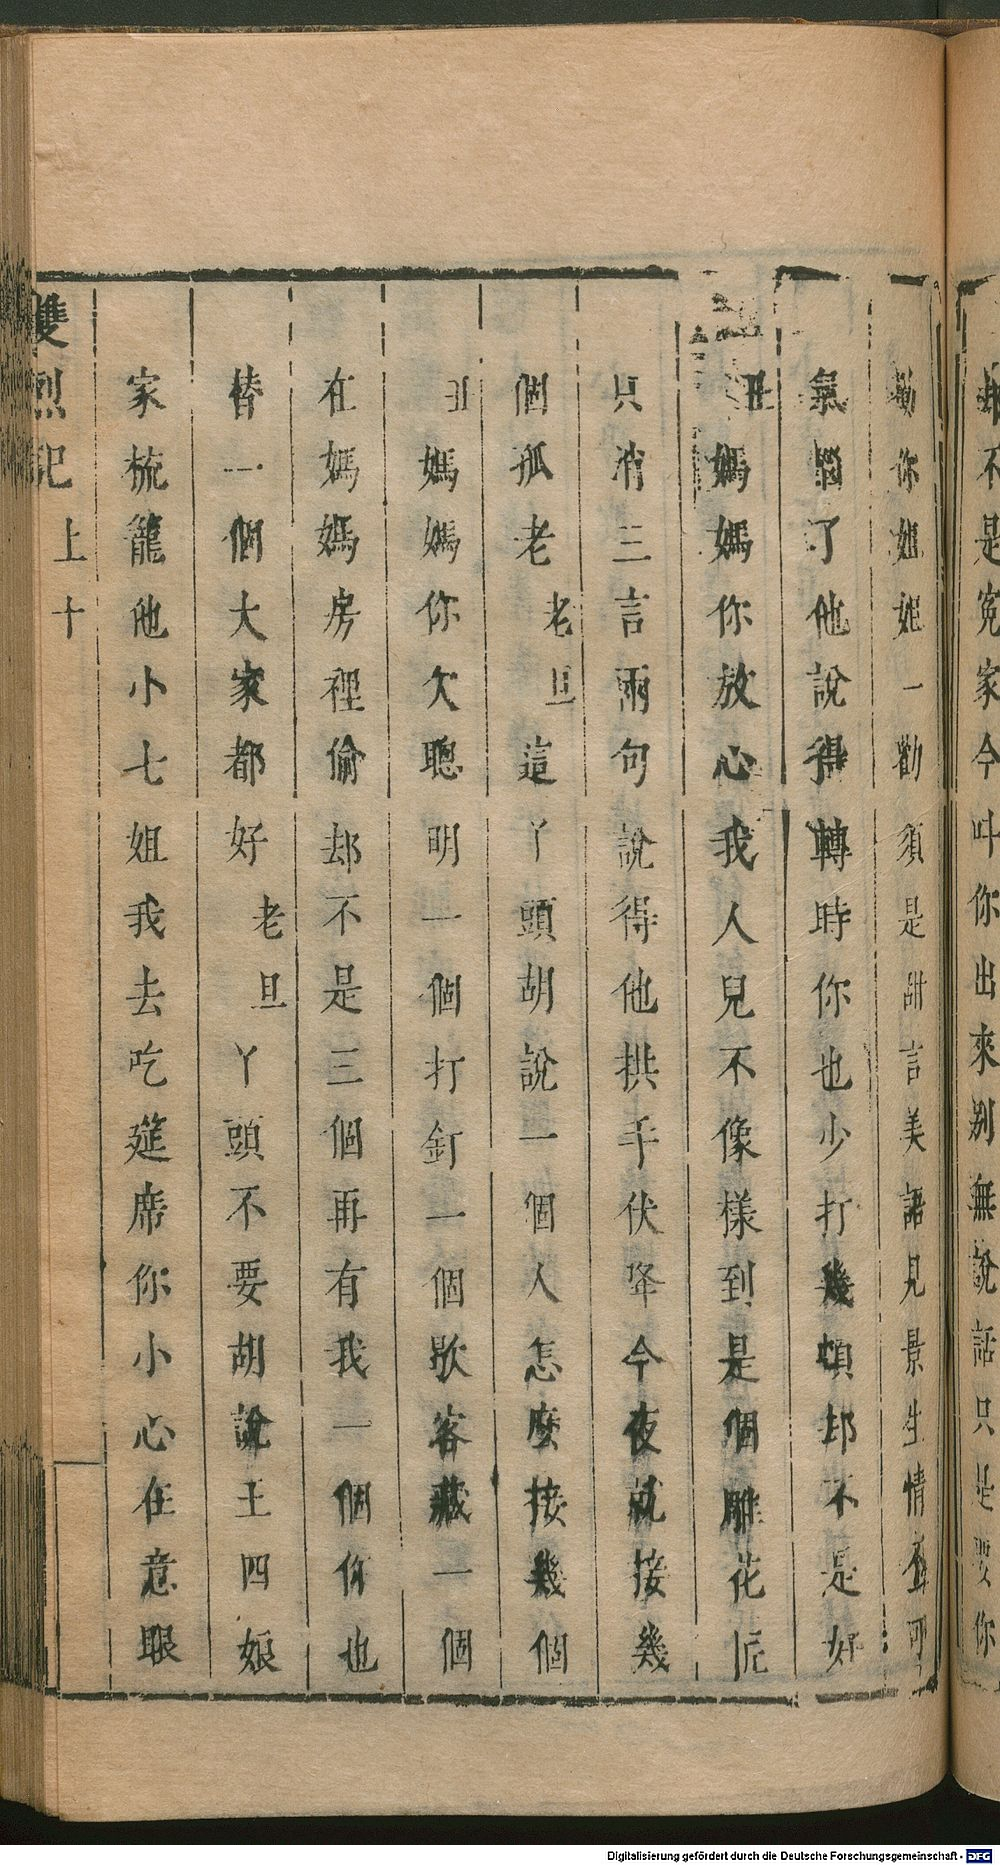 不是寃家今叫你出來别無說話只是要你
勸你姐姐一勸須是甜言美語見景生情奉可
氣惱了他說得轉時你也少打幾頓却不是好
丑媽媽你放心我人見不像樣到是個雕花匠
只消三言兩句說得他拱手伏降今夜就接幾
個孤老老旦這丫頭胡說一個人怎麽接幾個
丑媽媽你欠聰明一個打釘一個歇客藏一個
在媽媽房裡偷却不是三個再有我一個你也
替一個大家都好老旦丫頭不要胡說王四娘
家梳籠他小七姐我去吃筵席你小心在意眼
雙烈記上十
Digitalisierung gefördert durch die Deutsche Forschungsgemeinschaft - DFG